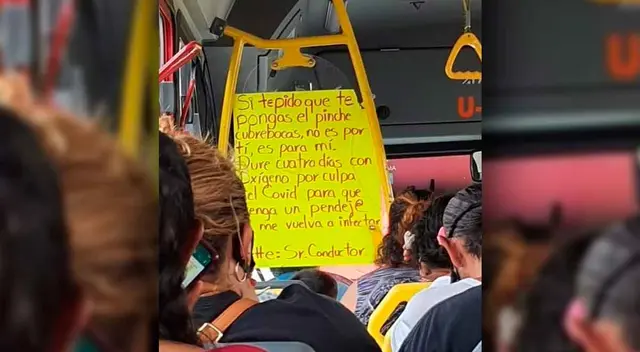 Si tepido que te
pongas el pinche
cubrebocas, no es por
tí, es para mí.
Dure cuatra días con
Oxígeno por culpa
el Covid para que
enga un pendej@
me vuelva a infectar
tte: Sr. Conductor
U-
U-